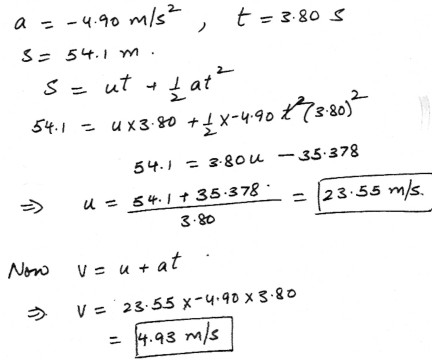 a = -4.90 m/s², t = 3.80 s
S = 54.1 m.
S = ut + ½ at²
54.1 = u×3.80 + ½ ×-4.90 (3.80)²
54.1 = 3.80u - 35.378
⇒ u = 54.1 + 35.378 / 3.80 = 23.55 m/s.
Now V = u + at
⇒ V = 23.55 × -4.90 × 3.80
= 4.93 m/s